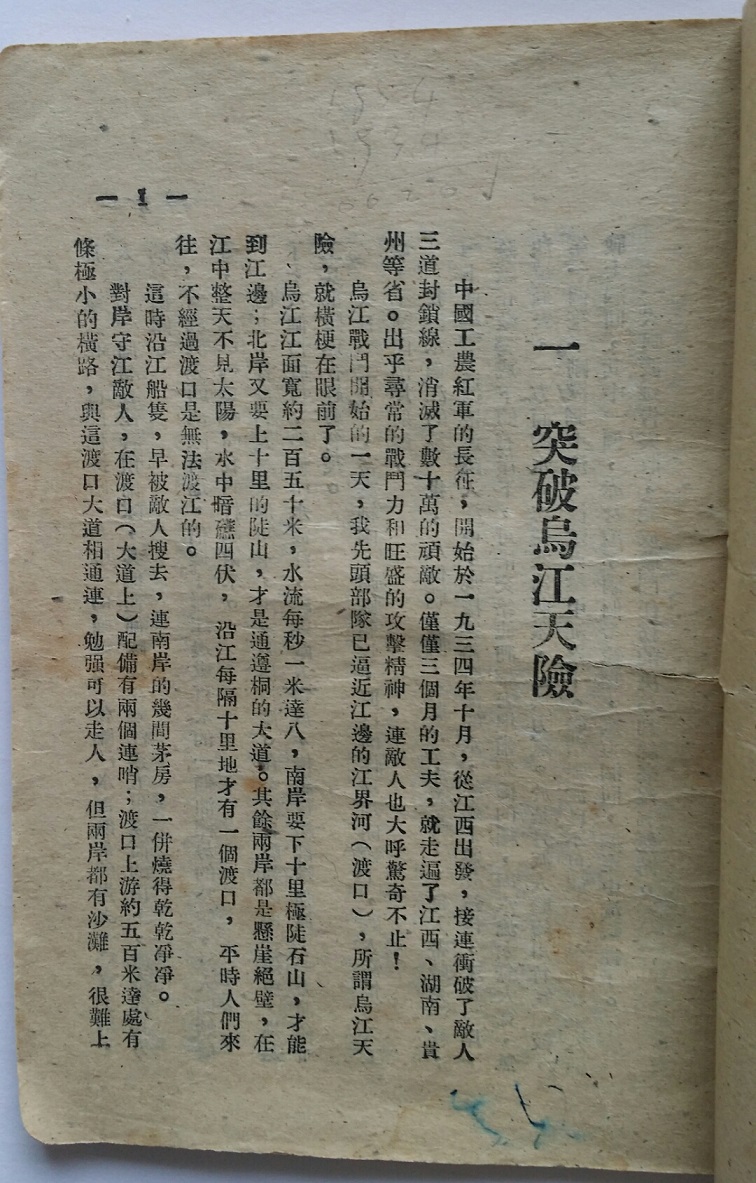 一　突破烏江天險
中國工農紅軍的長征，開始於一九三四年十月，從江西出發，接連衝破了敵人
三道封鎖線，消滅了數十萬的頑敵。僅僅三個月的工夫，就走遍了江西、湖南、貴
州等省。出乎尋常的戰鬥力和旺盛的攻擊精神，連敵人也大呼驚奇不止！
烏江戰鬥開始的一天，我先頭部隊已逼近江邊的江界河（渡口），所謂烏江天
險，就橫梗在眼前了。
烏江江面寬約二百五十米，水流每秒一米達八，南岸要下十里極陡石山，才能
到江邊；北岸又要上十里的陡山，才是通遵桐的大道。其餘兩岸都是懸崖絕壁，在
江中整天不見太陽，水中暗礁四伏，沿江每隔十里地才有一個渡口，平時人們來
往，不經過渡口是無法渡江的。
這時沿江船隻，早被敵人搜去，連南岸的幾間茅房，一併燒得乾乾凈凈。
對岸守江敵人，在渡口（大道上）配備有兩個連哨；渡口上游約五百米達處有
條極小的橫路，與這渡口大道相通連，勉强可以走人，但兩岸都有沙灘，很難上
— 1 —